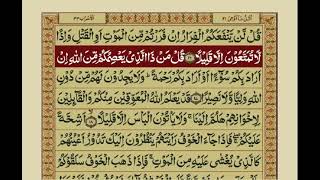 قُلْ لَّنْ يَّنْفَعَكُمُ الْفِرَارُ اِنْ فَرَرْتُمْ مِّنَ الْمَوْتِ اَوِ الْقَتْلِ وَاِذًا
لَّا تُمَتَّعُوْنَ اِلَّا قَلِيْلًا ۝۱۶ قُلْ مَنْ ذَا الَّذِيْ يَعْصِمُكُمْ مِّنَ اللّٰهِ اِنْ
اَرَادَ بِكُمْ سُوْٓءًا اَوْ اَرَادَ بِكُمْ رَحْمَةً ؕ وَلَا يَجِدُوْنَ لَهُمْ مِّنْ دُوْنِ
اللّٰهِ وَلِيًّا وَّلَا نَصِيْرًا ۝۱۷ قَدْ يَعْلَمُ اللّٰهُ الْمُعَوِّقِيْنَ مِنْكُمْ وَالْقَآئِلِيْنَ
لِاِخْوَانِهِمْ هَلُمَّ اِلَيْنَا ۚ وَلَا يَاْتُوْنَ الْبَاْسَ اِلَّا قَلِيْلًا ۝۱۸ اَشِحَّةً
عَلَيْكُمْ ۖ فَاِذَا جَآءَ الْخَوْفُ رَاَيْتَهُمْ يَنْظُرُوْنَ اِلَيْكَ تَدُوْرُ اَعْيُنُهُمْ
كَالَّذِيْ يُغْشٰى عَلَيْهِ مِنَ الْمَوْتِ ۚ فَاِذَا ذَهَبَ الْخَوْفُ سَلَقُوْكُمْ